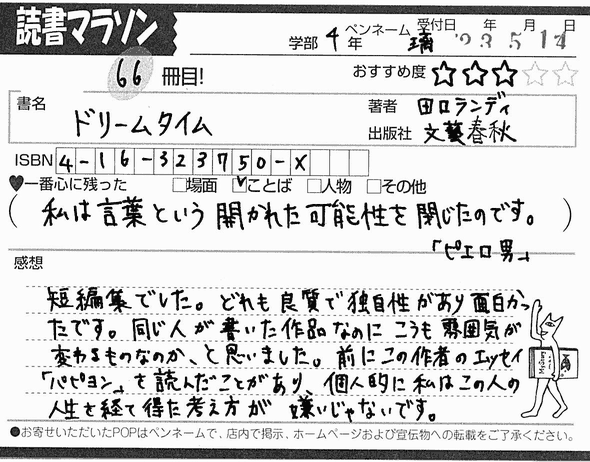 読書マラソン
学部 4年 ペンネーム 璃 受付日 '23年 5月 14日
66冊目!
おすすめ度 ☆☆☆☆☆
書名 ドリームタイム
著者 田口ランディ
出版社 文藝春秋
ISBN 4-16-323750-X
♥一番心に残った □場面 ☑ことば □人物 □その他
(私は言葉という開かれた可能性を閉じたのです。)
「ピエロ男」
感想
短編集でした。どれも良質で独自性があり面白かっ
たです。同じ人が書いた作品なのにこうも雰囲気が
変わるものなのか、と思いました。前にこの作者のエッセイ
「パピヨン」を読んだことがあり、個人的に私はこの人の
人生を経て得た考え方が嫌いじゃないです。
Mystery
●お寄せいただいたPOPはペンネームで、店内で掲示、ホームページおよび宣伝物への転載をご了承ください。